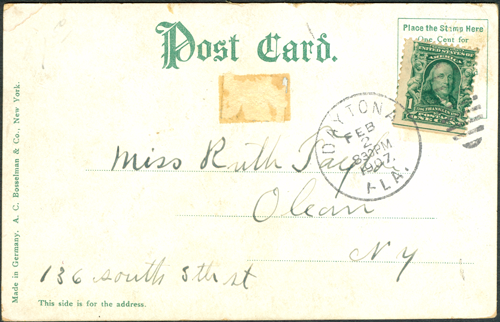 Post Card.
Place the Stamp Here
One Cent for
UNITED STATES OF
AMERICA
1
DAYTONA
FEB
2
8 30 PM
1907.
FLA.
Miss Ruth Tay
Olean
NY
136 south 8th st
This side is for the address.
Made in Germany. A. C. Bosselman & Co., New York.